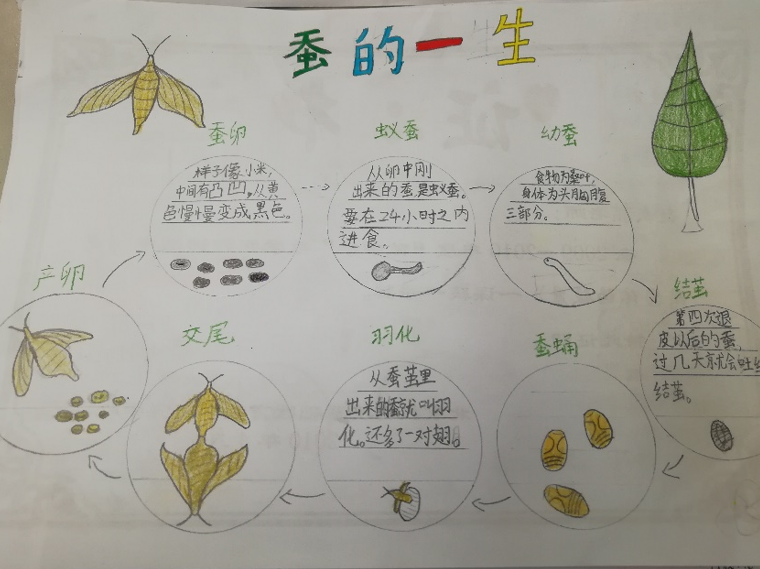 蚕的一生
蚕卵
样子像小米,
中间有凸凹,从黄
色慢慢变成黑色。
蚁蚕
从卵中刚
出来的蚕是蚁蚕。
要在24小时之内
进食。
幼蚕
食物为桑叶,
身体为头胸腹
三部分。
结茧
第四次退
皮以后的蚕,
过几天就会吐丝
结茧。
蚕蛹
羽化
从蚕茧里
出来的蚕就叫羽
化。还多了一对翅。
交尾
产卵